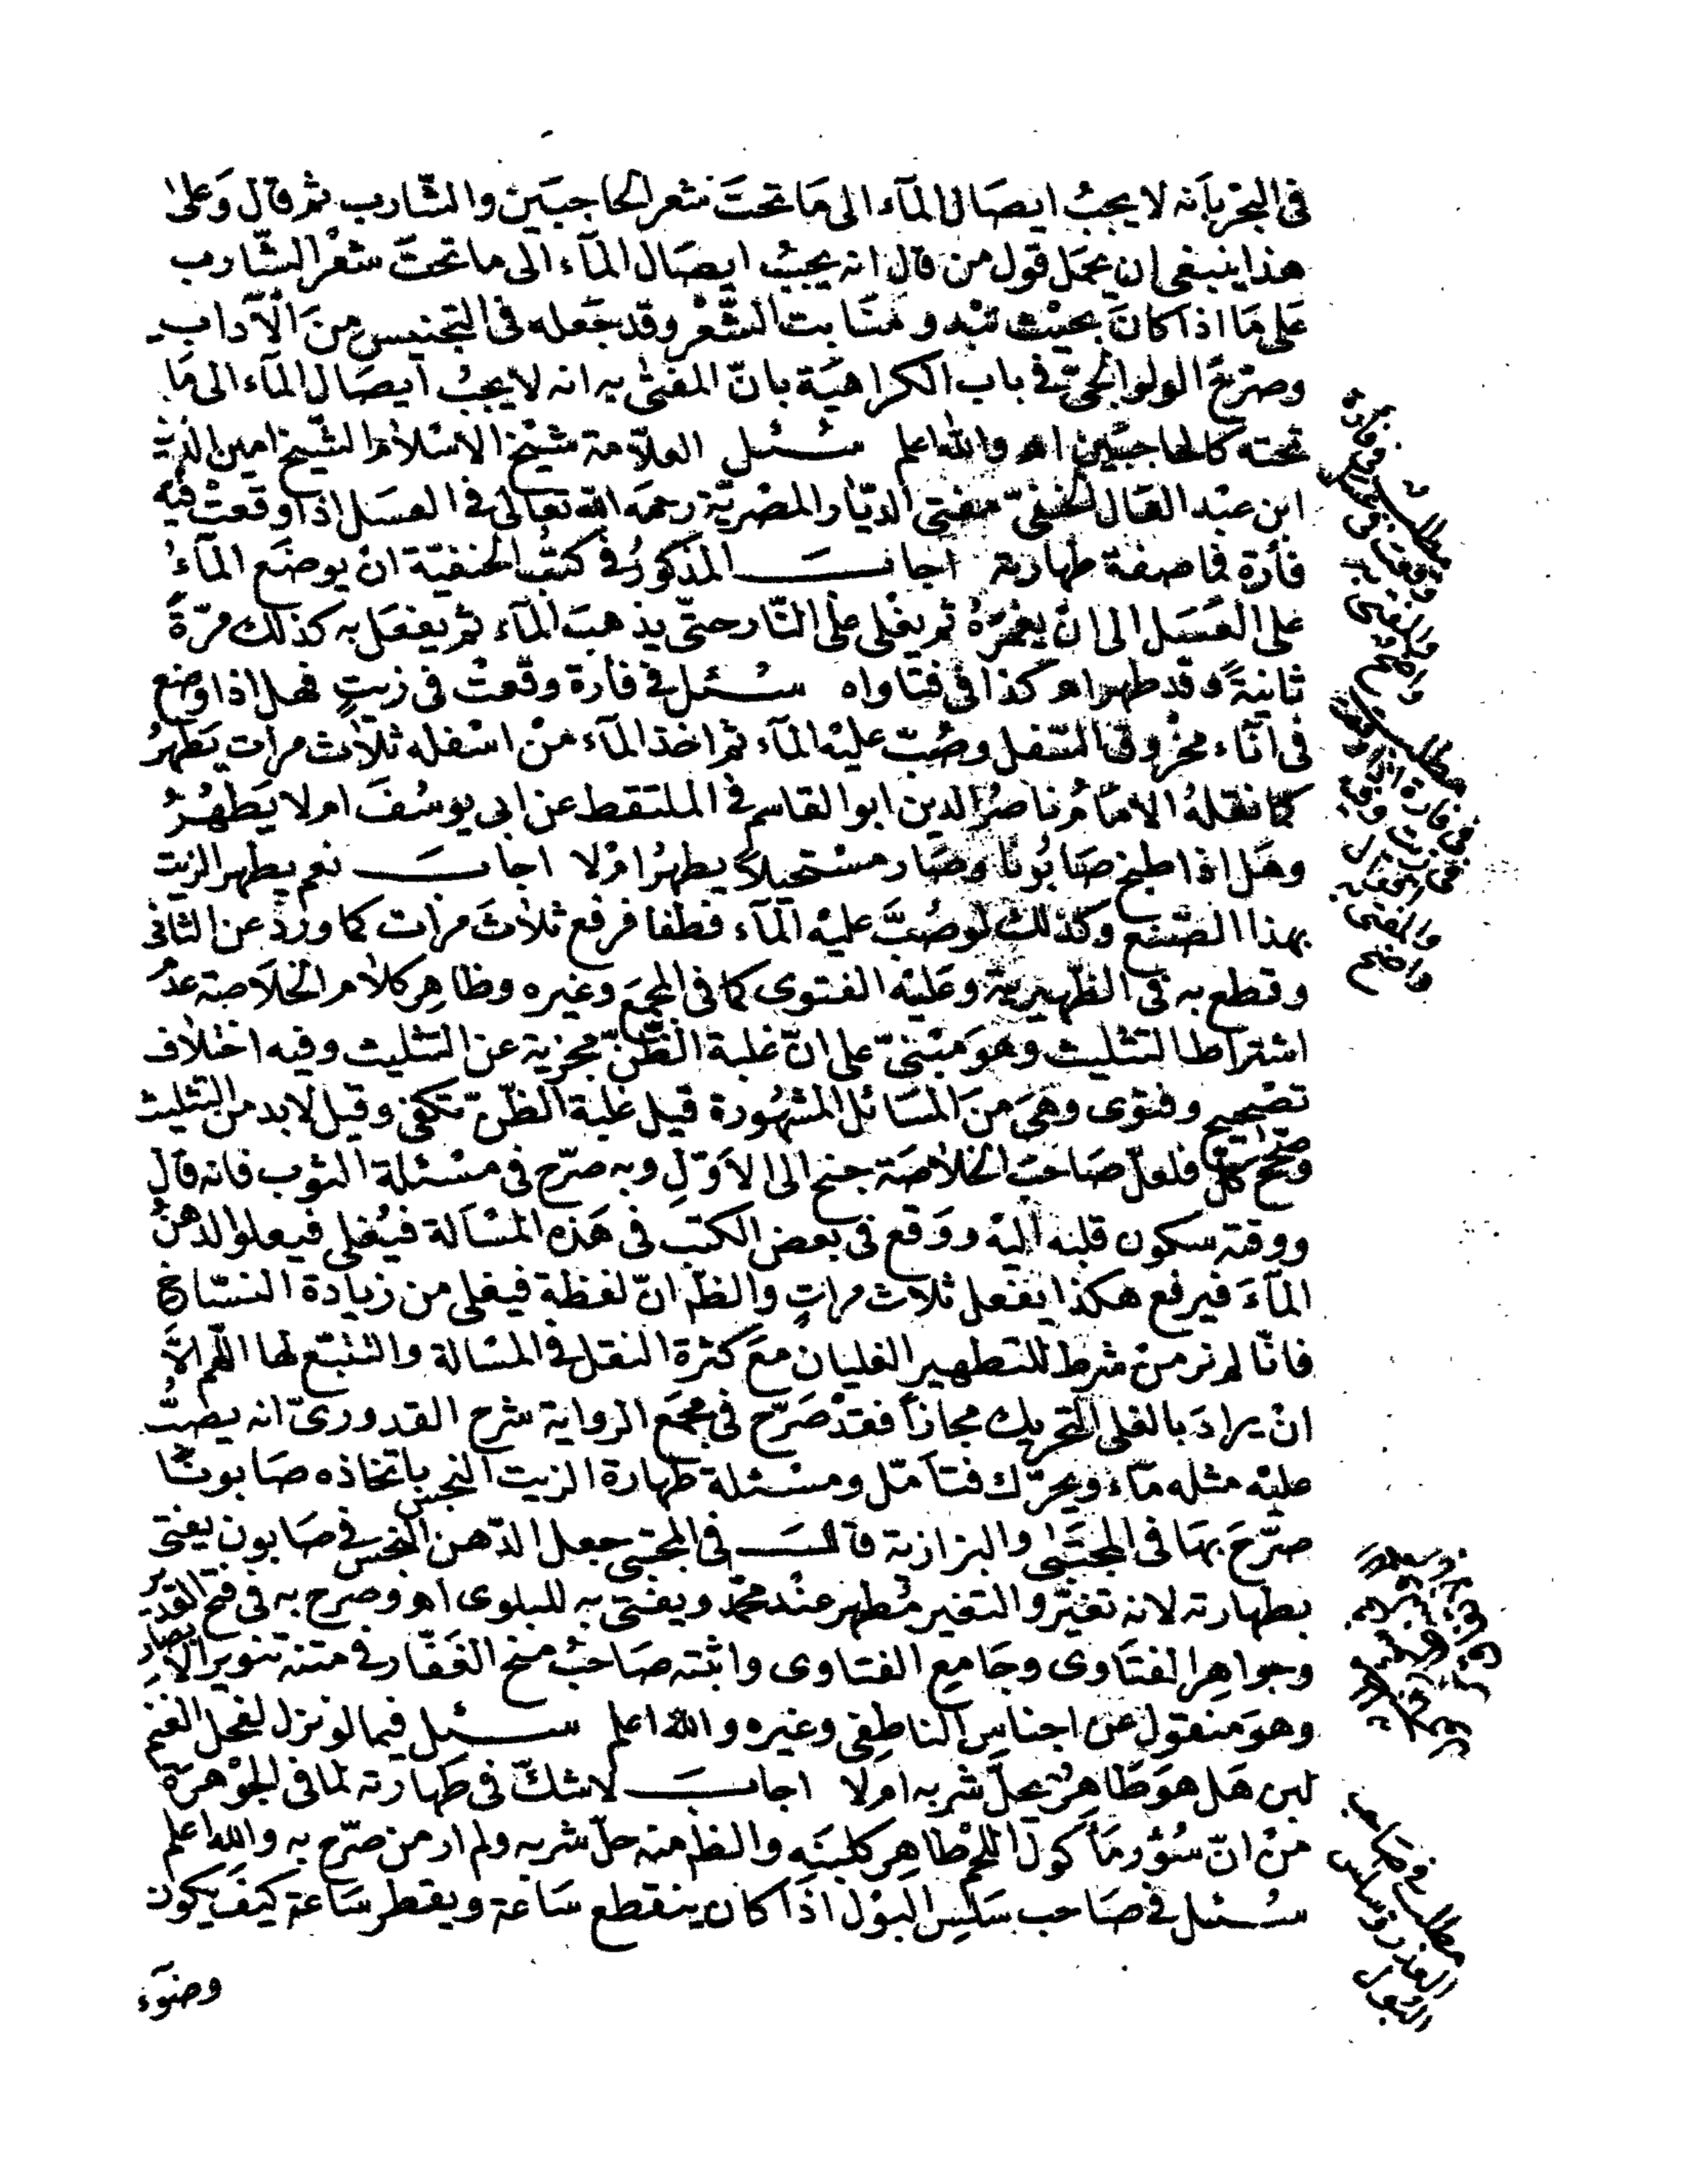 فى البحر بأنه لا يجبُ ايصَال المآء الى مَا تحتَ شعر الحاجبَين والشّارب ثم قال وَعلى
هذا ينبغى ان يحمَل قول من قال انه يجبُ ايصَال المآء الى ما تحتَ شعْر الشّارب
عَلى مَا اذا كانَ بحيْث تبْدو مَنَابت الشّعْر وقد جَعله فى التجنيس منَ الآداب
وصرّحَ الولوالجىّ فى باب الكراهيَة بانّ المفتى به انه لا يجبُ ايصَال المآء الى مَا
تحته كالحاجبَين اھ والله اعلم سُئل العلّامة شيْخ الاسْلام الشّيخ امين الدّين
ابن عبْد العَال الحنفىّ مفتى الديّار المصْريّة رحمَه الله تعَالىَ فى العسَل اذا وقعَتْ فيْه
فأرَة فما صفة طهارته اجابَ المذكورُ فى كتُب الحنفيّة انْ يوضَع المآءُ
على العَسَل الى انْ يغمرَهُ ثم يغْلى على النّار حتّى يذهبَ المآء ثم يفعَل به كذلك مرّةً
ثانيَةً وقد طهر اھ كذا فى فتاواه سُئل فى فأرَة وقعتْ فى زيتٍ فهل اذا وضع
فى انَاء مخرُوق السّفل وصُبّ عليْه المآء ثم اخذ المآء منْ اسْفله ثلاث مرات يَطهرُ
كما نقلهُ الامَامُ ناصرُ الدين ابو القاسم فى الملتقط عن ابى يوسُفَ ام لا يَطهُرُ
وهَل اذا طبخ صَابُونا وصَار مسْتحيلاً يطهرُ امْ لا اجابَ نعم يطهر الزيت
بهذا الصّنع وكذلك لو صُبَّ عليْه المآء فطفا فرفع ثلاثَ مرات كما وردَ عن الثانى
وقطع به فى الظّهيريّة وعَليْه الفتوى كما فى المجمَع وغيره وظاهِر كلام الخلَاصة عدَم
اشتراط التثليث وهوَ مبْنىّ على انّ غلبة الظّنّ مجزية عن التثليث وفيه اختلاف
تصْحيح وفتوى وهىَ منَ المسَائل المشهُورة قيل غلبة الظّنّ تكفى وقيل لا بد من التثليث
وصحّح كلّ فلعلّ صَاحبَ الخلاصَة جنح الى الاَوّلِ وبه صرّح فى مسْئلة الثوب فانه قال
ووقته سكون قلبه اليْه ووَقع فى بعض الكتب فى هَذه المسْاَلة فيُغلى فيعلو الدهنُ
المآءَ فيرفع هكذا يفعل ثلاث مراتٍ والظّم انّ لفظة فيغلى من زيادة النسّاخ
فانّا لم نر منْ شرط للتطهير الغليان معَ كثرة النقل فى المسَالة والتتبّع لها اللّهم الاّ
انْ يرادَ بالغلى التحريك مجازاً فقدْ صَرّح فى مجمَع الرواية شرح القدورىّ انه يصُبُّ
عليْه مثله مَآء ويحرّك فتأمّل ومسْئلة طهارة الزيت النجس باتخاذه صَابونًا
صرّحَ بهَا فى المجتبَى والبزازية قالَ فى المجتبى جعل الدّهن النجس فى صَابون يفتى
بطهارته لانه تغيّر والتغير مُطهر عنْد محمّد ويفتى به للبلوى اھ وصرح به فى فتح القدير
وجواهِر الفتَاوى وجَامع الفتاوى واثبته صَاحبُ منح الغَفّار فى متنه تنوير الابصَار
وهوَ منقول عن اجناس الناطِفى وغيره والله اعلم سُئل فيما لو نزل لفحل الغنم
لبن هَل هوَ طَاهرٌ يحلّ شربه ام لا اجابَ لا شكّ فى طَهارته لما فى الجوْهرة
منْ انّ سُؤر مَأكول اللحم طاهِر كلبَنِه والظم منه حلّ شربه ولم ار من صرّح به والله اعلم
سُئل فى صَاحب سَلسِ البوْل اذَا كان ينقطع سَاعة ويقطر سَاعة كيفَ يكون
وضوَء
مطلب
مطلب
فى فارة
فى زيت
والمفتى به
واضح
مطلب فى صاحب
العذر وسلس
البول